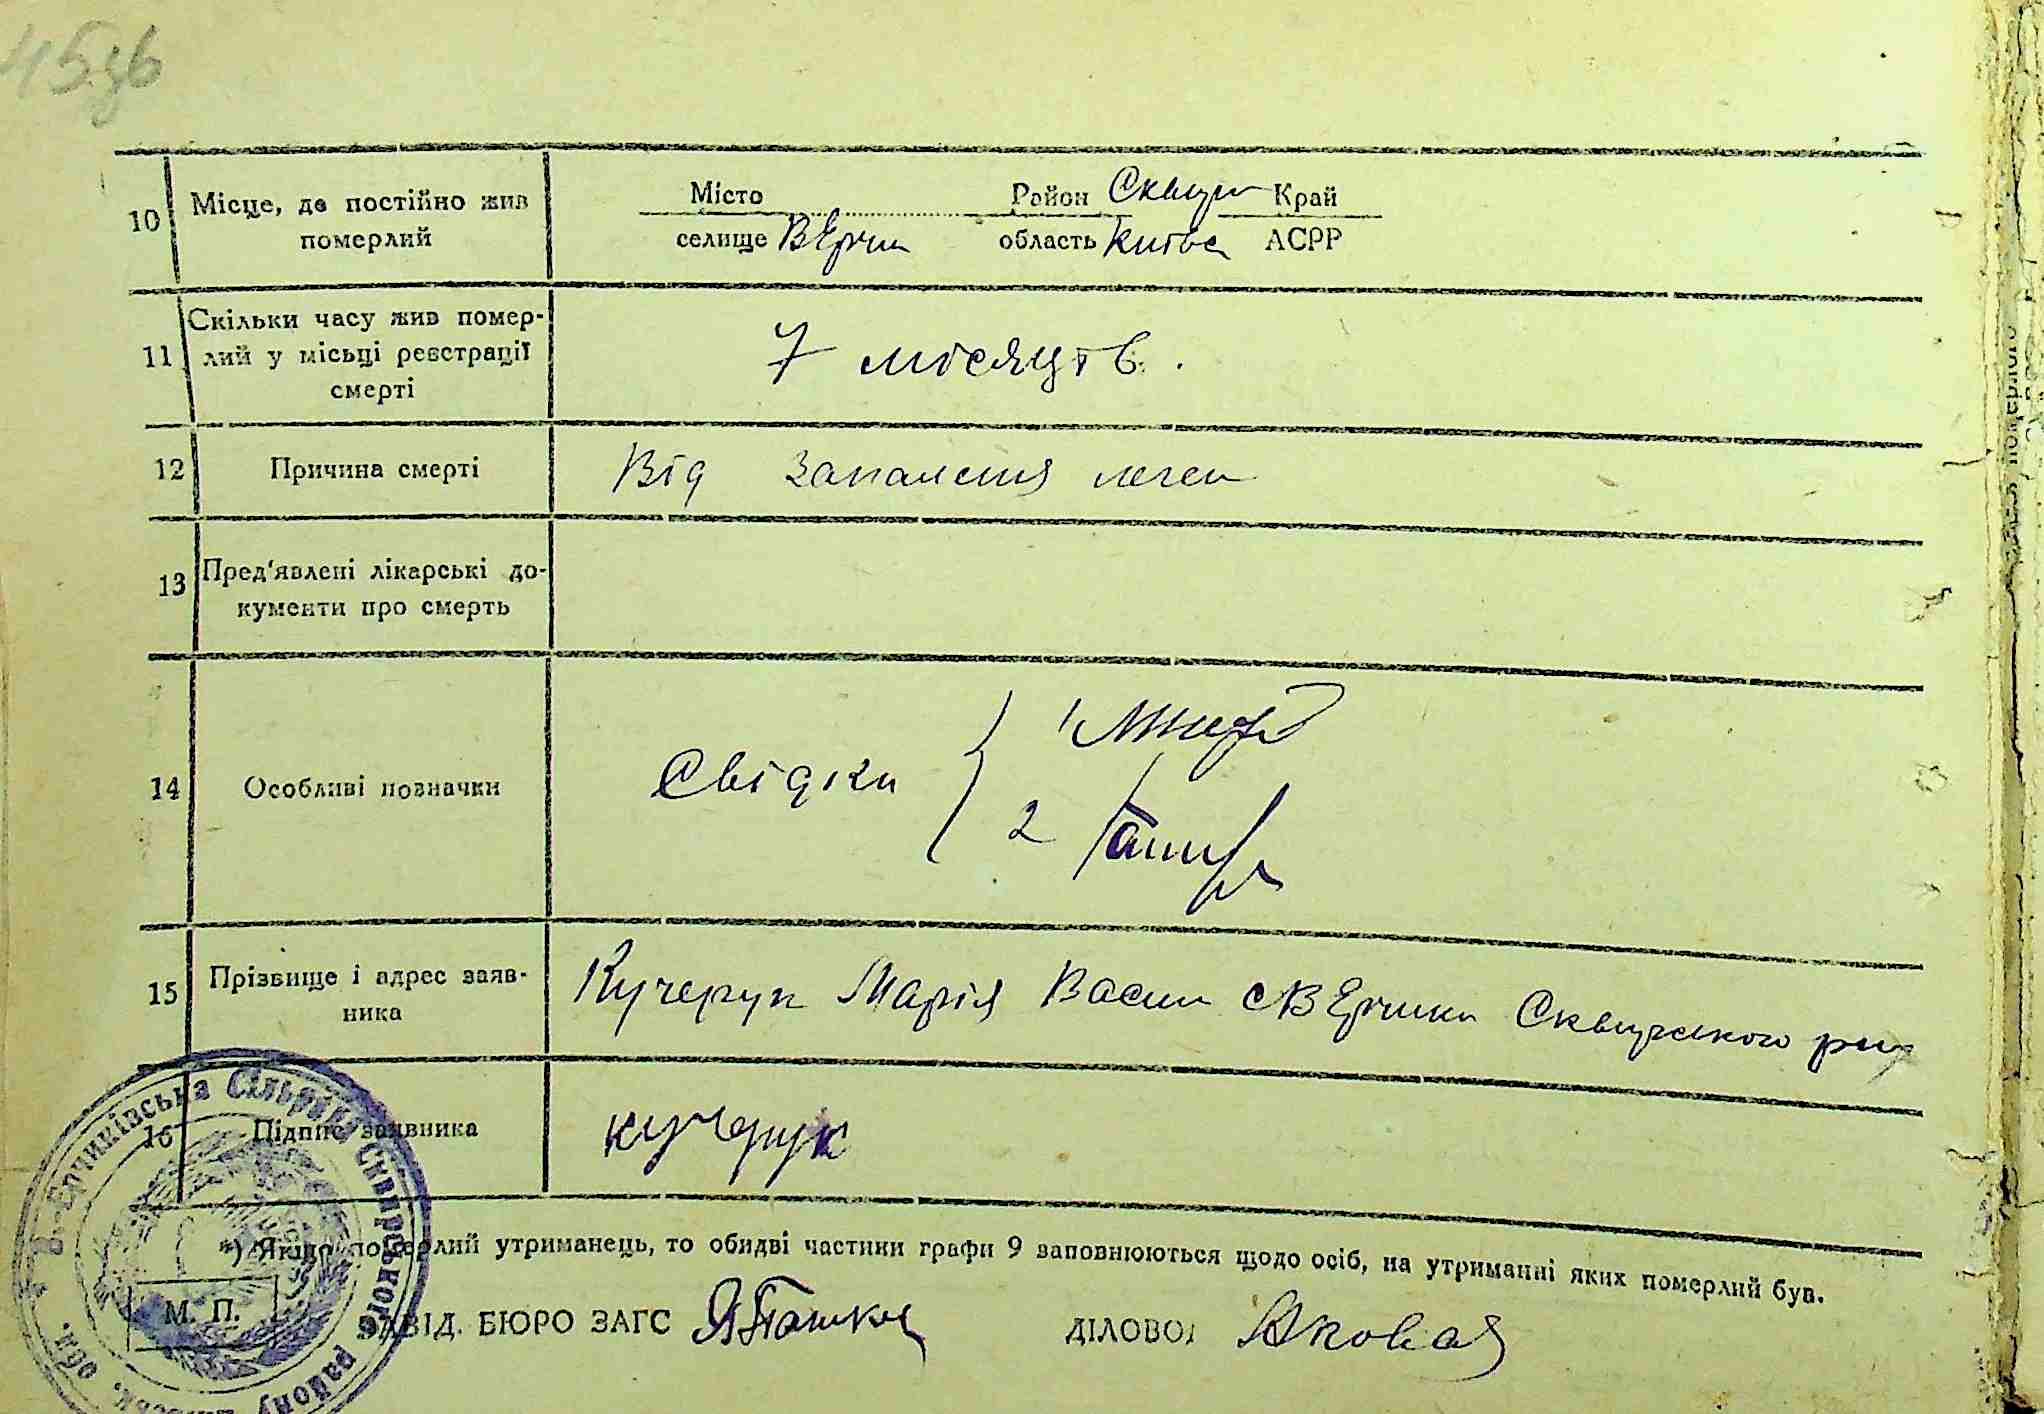 45зв
10 Місце, де постійно жив померлий
Місто Район Сквир Край
селище ВЕрчи область Київс АСРР
11 Скільки часу жив помер-
лий у місьці реєстрації
смерті
7 місяців.
12 Причина смерті Від запалення леген
13 Пред'явлені лікарські до-
кументи про смерть
14 Особливі позначки Свідки 1
2
15 Прізвище і адрес заяв-
ника
Кучерук Марія Васил с ВЕрчики Сквирського рну
16 Підпис заявника кучерук
*) Якщо померлий утриманець, то обидві частини графи 9 заповнюються щодо осіб, на утриманні яких померлий був.
М. П. ЗАВІД. БЮРО ЗАГС ДІЛОВОД
В.-Єрчиківська Сільрада Сквирського району обл.